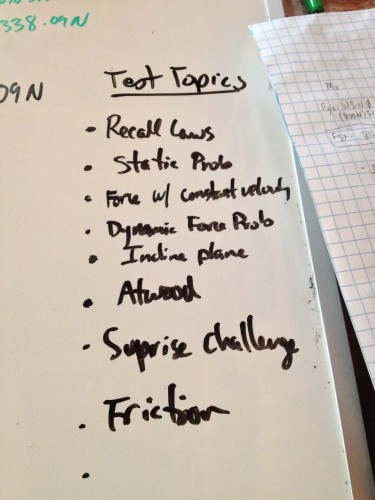 338.09N
09N
Test Topics
• Recall Laws
• Static Prob
• Force w/ constant velocity
• Dynamic Force Prob
• Incline plane
• Atwood
• Suprise challenge
• Friction
•